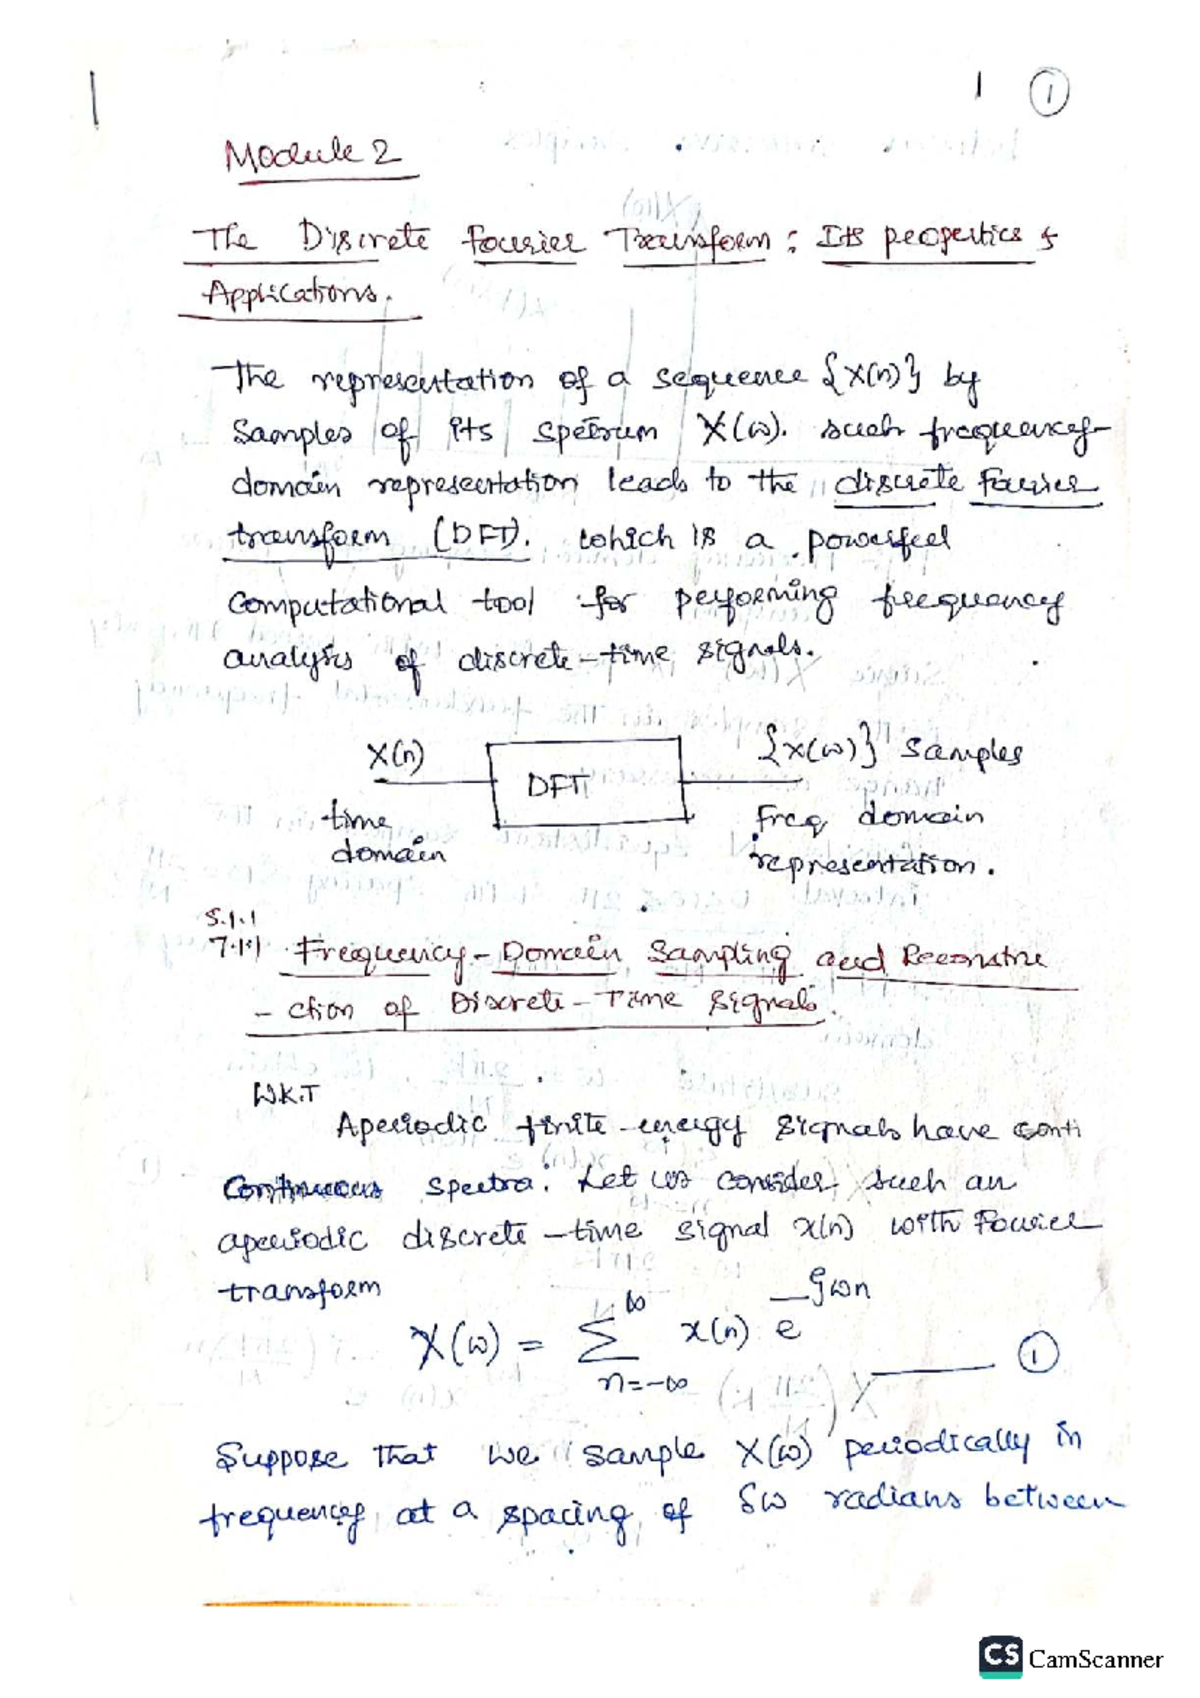 1 ①
Module 2
The Discrete Fourier Transform : Its properties &
Applications.
The representation of a sequence {X(n)} by
Samples of its spetrum X(ω). such frequency-
domain representation leads to the discrete Fourier
transform (DFT). which is a powerful
Computational tool for performing frequency
analysis of discrete-time signals.
X(n) DFT {X(ω)} Samples
time Freq domain
domain representation.
5.1.1
7.1.1 Frequency-Domain Sampling and Reconstru
-ction of Discrete-Time Signals.
W.K.T
Aperiodic finite energy signals have conti
Continuous spectra. Let us consider such an
aperiodic discrete-time signal x(n) with Fourier
transform
X(ω) = ∑_{n=-∞}^{∞} x(n) e^{-jωn} ——— ①
Suppose that we sample X(ω) periodically in
frequency at a spacing of δω radians between
CS CamScanner